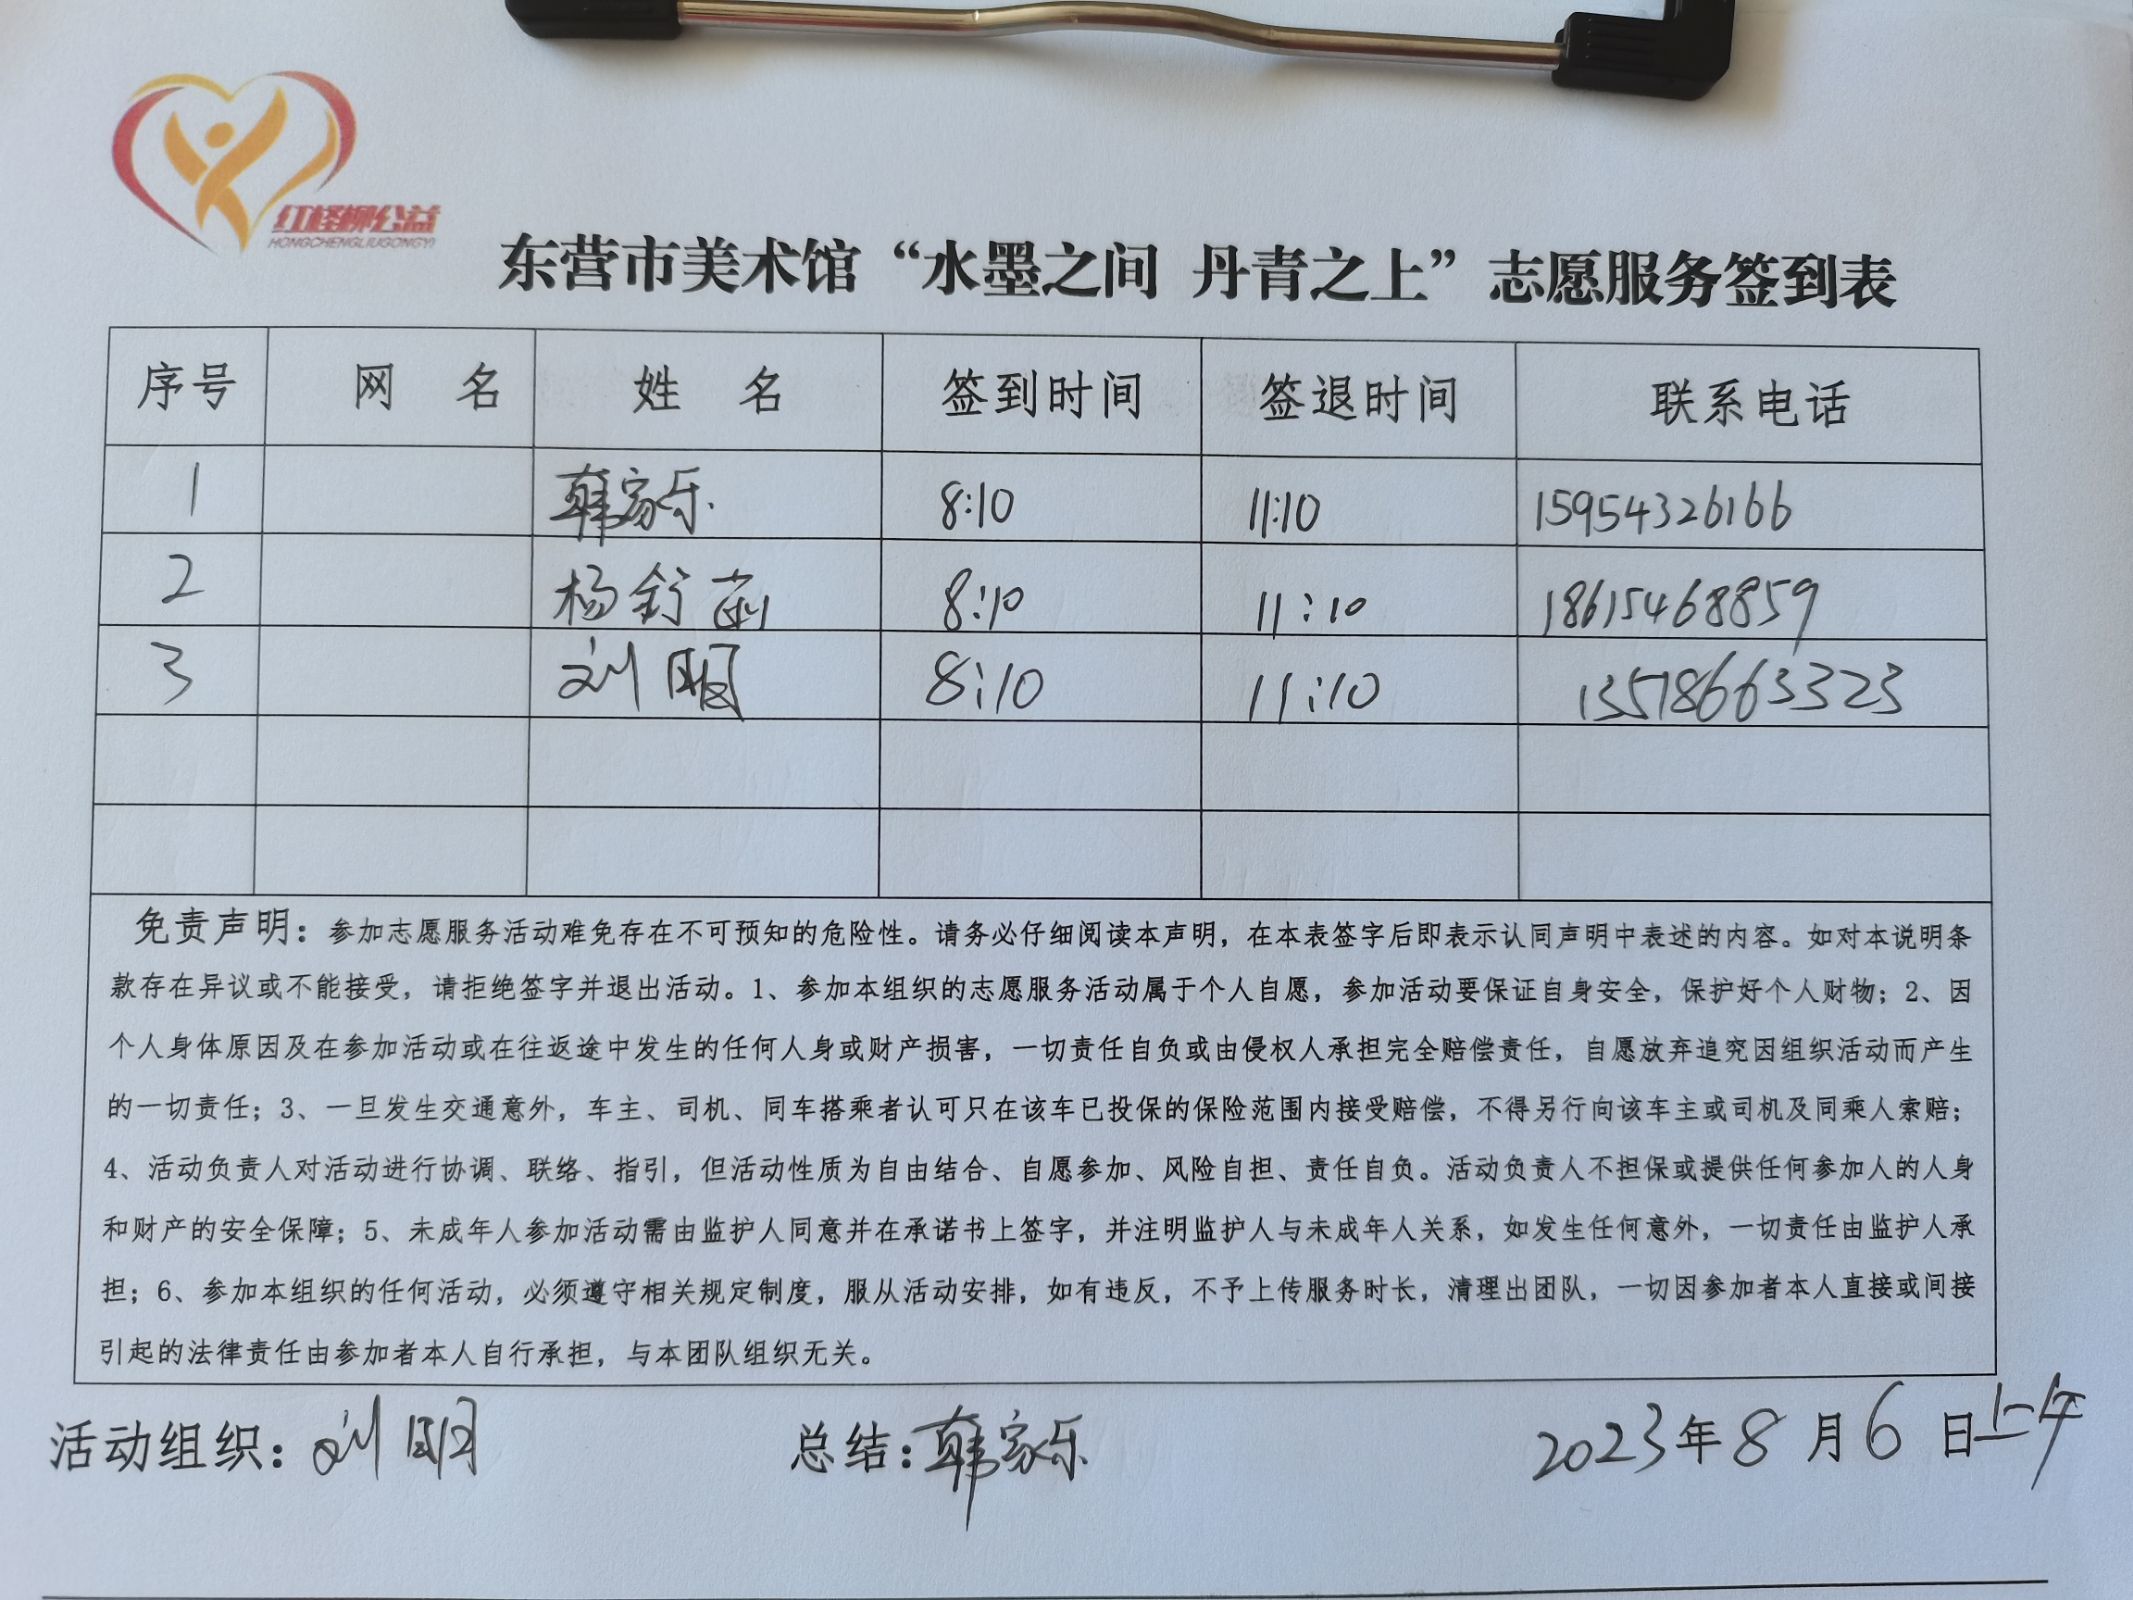 红柽柳公益
HONGCHENGLIUGONGYI
东营市美术馆“水墨之间 丹青之上”志愿服务签到表
序号 网 名 姓 名 签到时间 签退时间 联系电话
1 韩家乐 8:10 11:10 15954326166
2 杨舒茵 8:10 11:10 18615468859
3 刘明 8:10 11:10 13578663323
免责声明：参加志愿服务活动难免存在不可预知的危险性。请务必仔细阅读本声明，在本表签字后即表示认同声明中表述的内容。如对本说明条
款存在异议或不能接受，请拒绝签字并退出活动。1、参加本组织的志愿服务活动属于个人自愿，参加活动要保证自身安全，保护好个人财物；2、因
个人身体原因及在参加活动或在往返途中发生的任何人身或财产损害，一切责任自负或由侵权人承担完全赔偿责任，自愿放弃追究因组织活动而产生
的一切责任；3、一旦发生交通意外，车主、司机、同车搭乘者认可只在该车已投保的保险范围内接受赔偿，不得另行向该车主或司机及同乘人索赔；
4、活动负责人对活动进行协调、联络、指引，但活动性质为自由结合、自愿参加、风险自担、责任自负。活动负责人不担保或提供任何参加人的人身
和财产的安全保障；5、未成年人参加活动需由监护人同意并在承诺书上签字，并注明监护人与未成年人关系，如发生任何意外，一切责任由监护人承
担；6、参加本组织的任何活动，必须遵守相关规定制度，服从活动安排，如有违反，不予上传服务时长，清理出团队，一切因参加者本人直接或间接
引起的法律责任由参加者本人自行承担，与本团队组织无关。
活动组织：刘明 总结：韩家乐 2023年8月6日上午